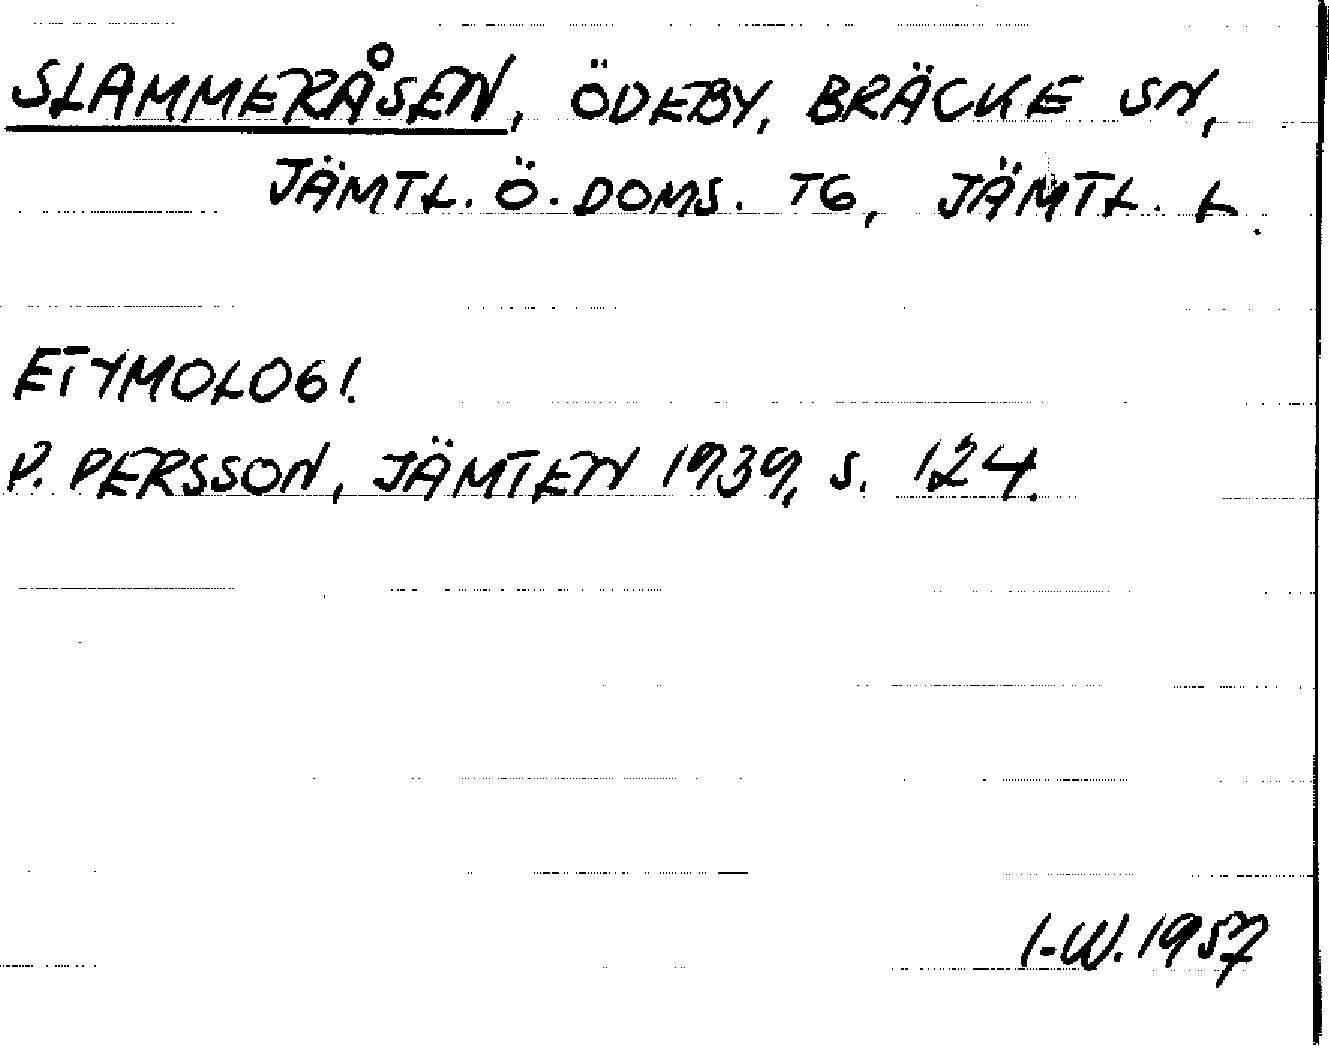 SLAMMERÅSEN, ÖDEBY, BRÄCKE SN,
JÄMTL. Ö. DOMS. TG, JÄMTL. L.
ETYMOLOGI.
P. PERSSON, JÄMTEN 1939, S. 124.
I-W. 1957